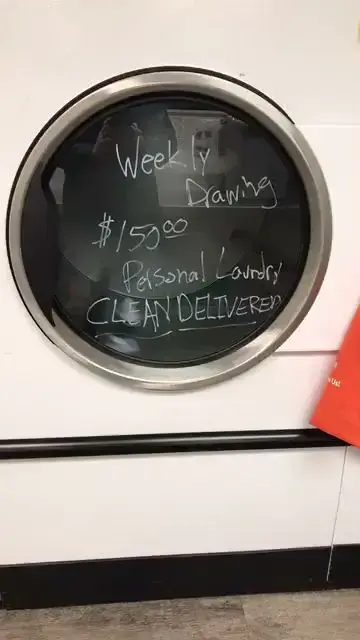 Weekly
Drawing
$150.00
Personal Laundry
CLEAN DELIVERED
Us!